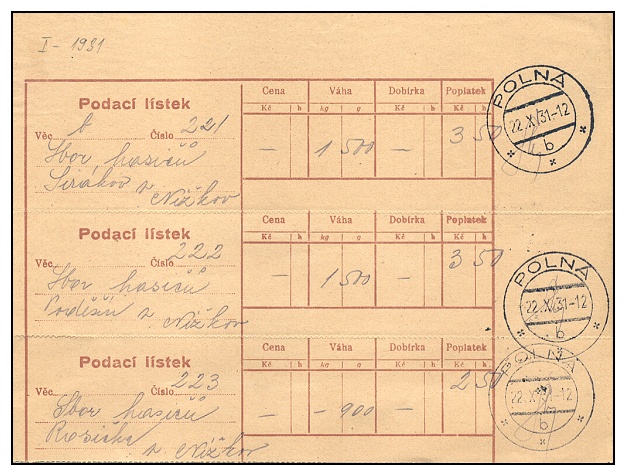 I - 1931
Cena Váha Dobírka Poplatek
Kč h kg g Kč h Kč h
Podací lístek
Věc b Číslo 221
Sbor hasičů
Sirákov z Nížkov
— 1 500 — 3 50
POLNÁ
22.X.31-12
b
Cena Váha Dobírka Poplatek
Kč h kg g Kč h Kč h
Podací lístek
Věc Číslo 222
Sbor hasičů
z Nížkov
— 1 500 — 3 50
POLNÁ
22.X.31-12
b
Cena Váha Dobírka Poplatek
Kč h kg g Kč h Kč h
Podací lístek
Věc Číslo 223
Sbor hasičů
Rosička z Nížkov
— - 900 — 2 50
POLNÁ
22.X.31-12
b